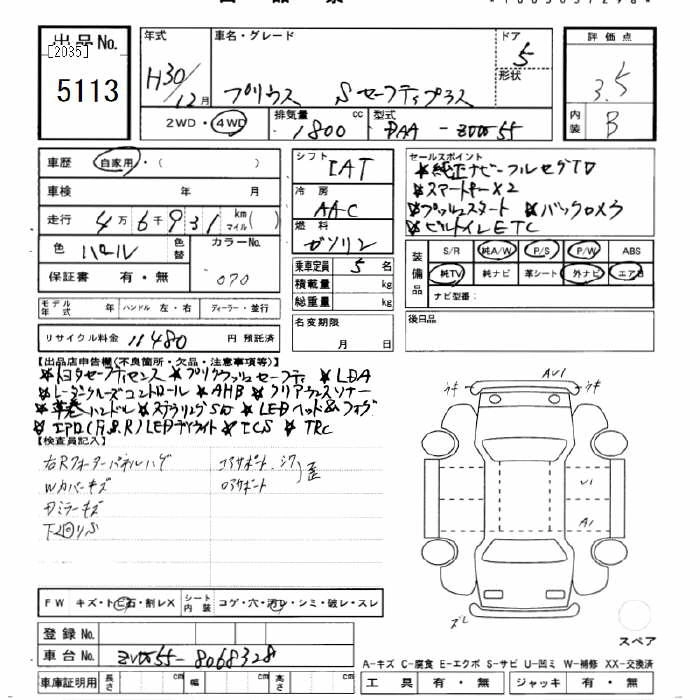 出品No.
[2035]
5113
年式
H30/12月
車名・グレード
プリウス Sセーフティプラス
ドア
5
形状
評価点
3.5
内装
B
2WD・4WD
排気量
1800 cc
型式
DAA - ZVW55
車歴
自家用・( )
車検 年 月
走行 4万6千931 km マイル( )
色 パール
色替
カラーNo.
070
保証書 有・無
シフト
IAT
冷房
AAC
燃料
ガソリン
乗車定員 5 名
積載量 kg
総重量 kg
セールスポイント
★純正ナビーフルセグTV
★スマートキーX2
★プッシュスタート ★バックカメラ
★ビルトインETC
装備品
S/R 純A/W P/S P/W ABS
純TV 純ナビ 革シート 外ナビ エアB
ナビ型番:
モデル年式 年 ハンドル 左・右 ディーラー・並行
リサイクル料金 11480 円 預託済
名変期限
月 日
後日品
【出品店申告欄(不良箇所・欠品・注意事項等)】
★トヨタセーフティセンス ★プリクラッシュセーフティ ★LDA
★レーダークルーズコントロール ★AHB ★クリアランスソナー
★革巻ハンドル ★ステアリングSW ★LEDヘッド&フォグ
★LEDデイライト ★TRC
【検査員記入】
右Rクォーターパネルハゲ
Wカバーキズ
Fミラーキズ
下回りS
コアサポート シワ
ロアサポート
歪
キキ
AU1
キキ
U1
A1
ズレ
スペア
FW キズ・トビ石・割レX
シート内装 コゲ・穴・汚レ・シミ・破レ・スレ
登録No.
車台No. ZVW55-8068328
車庫証明用 長さ cm 幅 cm 高さ cm
A-キズ C-腐食 E-エクボ S-サビ U-凹ミ W-補修 XX-交換済
工具 有・無 ジャッキ 有・無